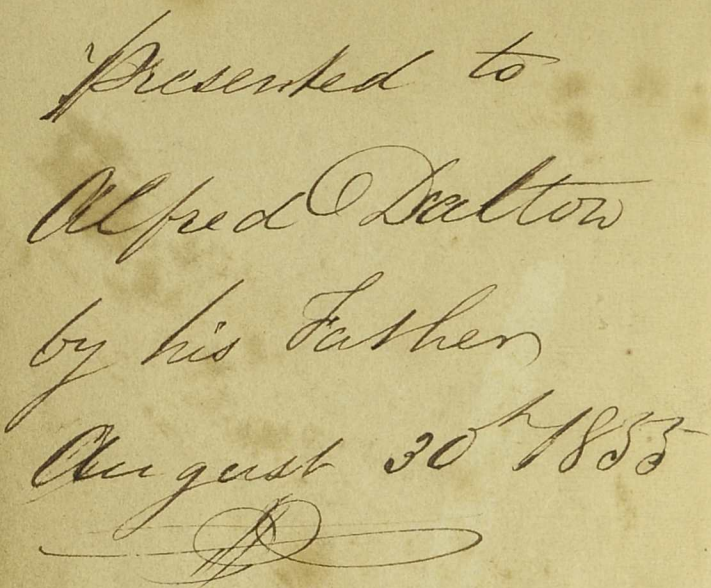 Presented to
Alfred Dalton
by his Father
August 30th 1855